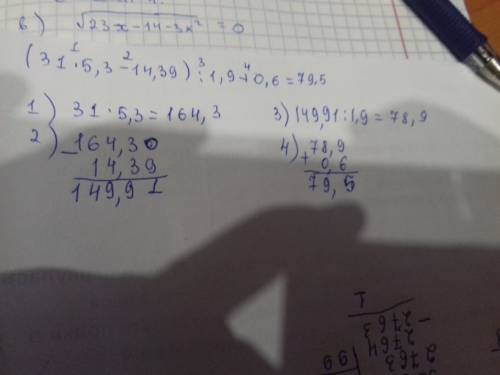 в) √23x-14-3x² = 0
(31 · 5,3 - 14,39) : 1,9 + 0,6 = 79,5
1 2 3 4
1) 31 · 5,3 = 164,3
2) 164,30
- 14,39
149,91
3) 149,91 : 1,9 = 78,9
4) 78,9
+ 0,6
79,5
2763 | 99
2764
- 2763
1